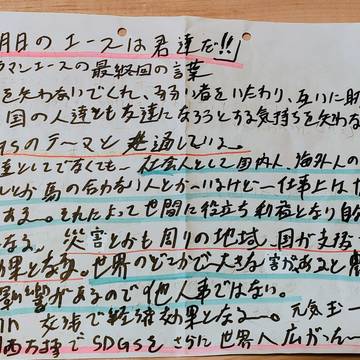 明日のエースは君達だ!!」
ラマンエースの最終回の言葉
を失わないでくれ、弱い者をいたわり、互いに助
国の人達とも友達になろうとする気持ちを失わな
GSのテーマと共通している。
達としてでなくても─社会人として国内人、海外の人の
馬の合わない人とか〜いるけど─仕事上は
ある。それによって世間に役立ち利益となり自
なる。災害とかも周りの地域、国が支援
効果となる。世界のどこかで大きな害があると
影響があるので他人事ではない。
交流で経済効果となる。元気玉─
関西万博でSDGSをさらに世界へ広がった─